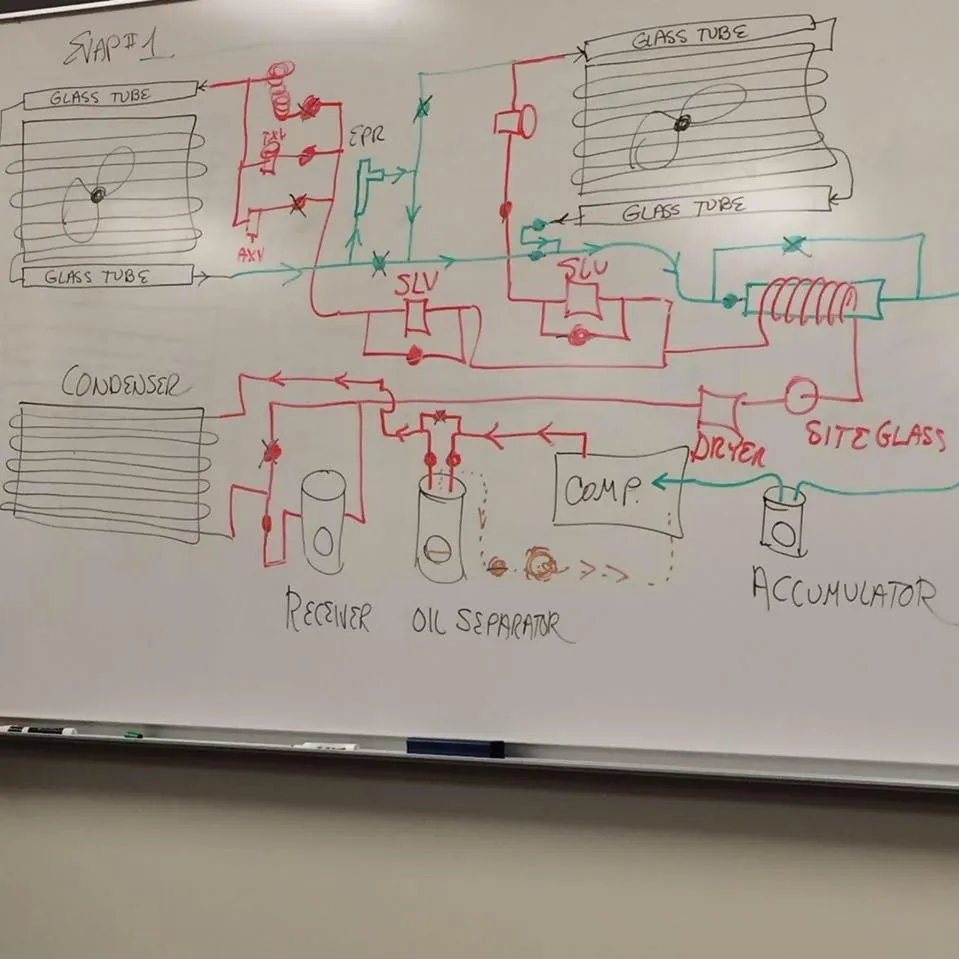 EVAP#1
GLASS TUBE
GLASS TUBE
GLASS TUBE
EPR
TXV
GLASS TUBE
AXV
SLV
SLV
CONDENSER
DRYER
SITE GLASS
COMP.
RECEIVER
OIL SEPARATOR
ACCUMULATOR